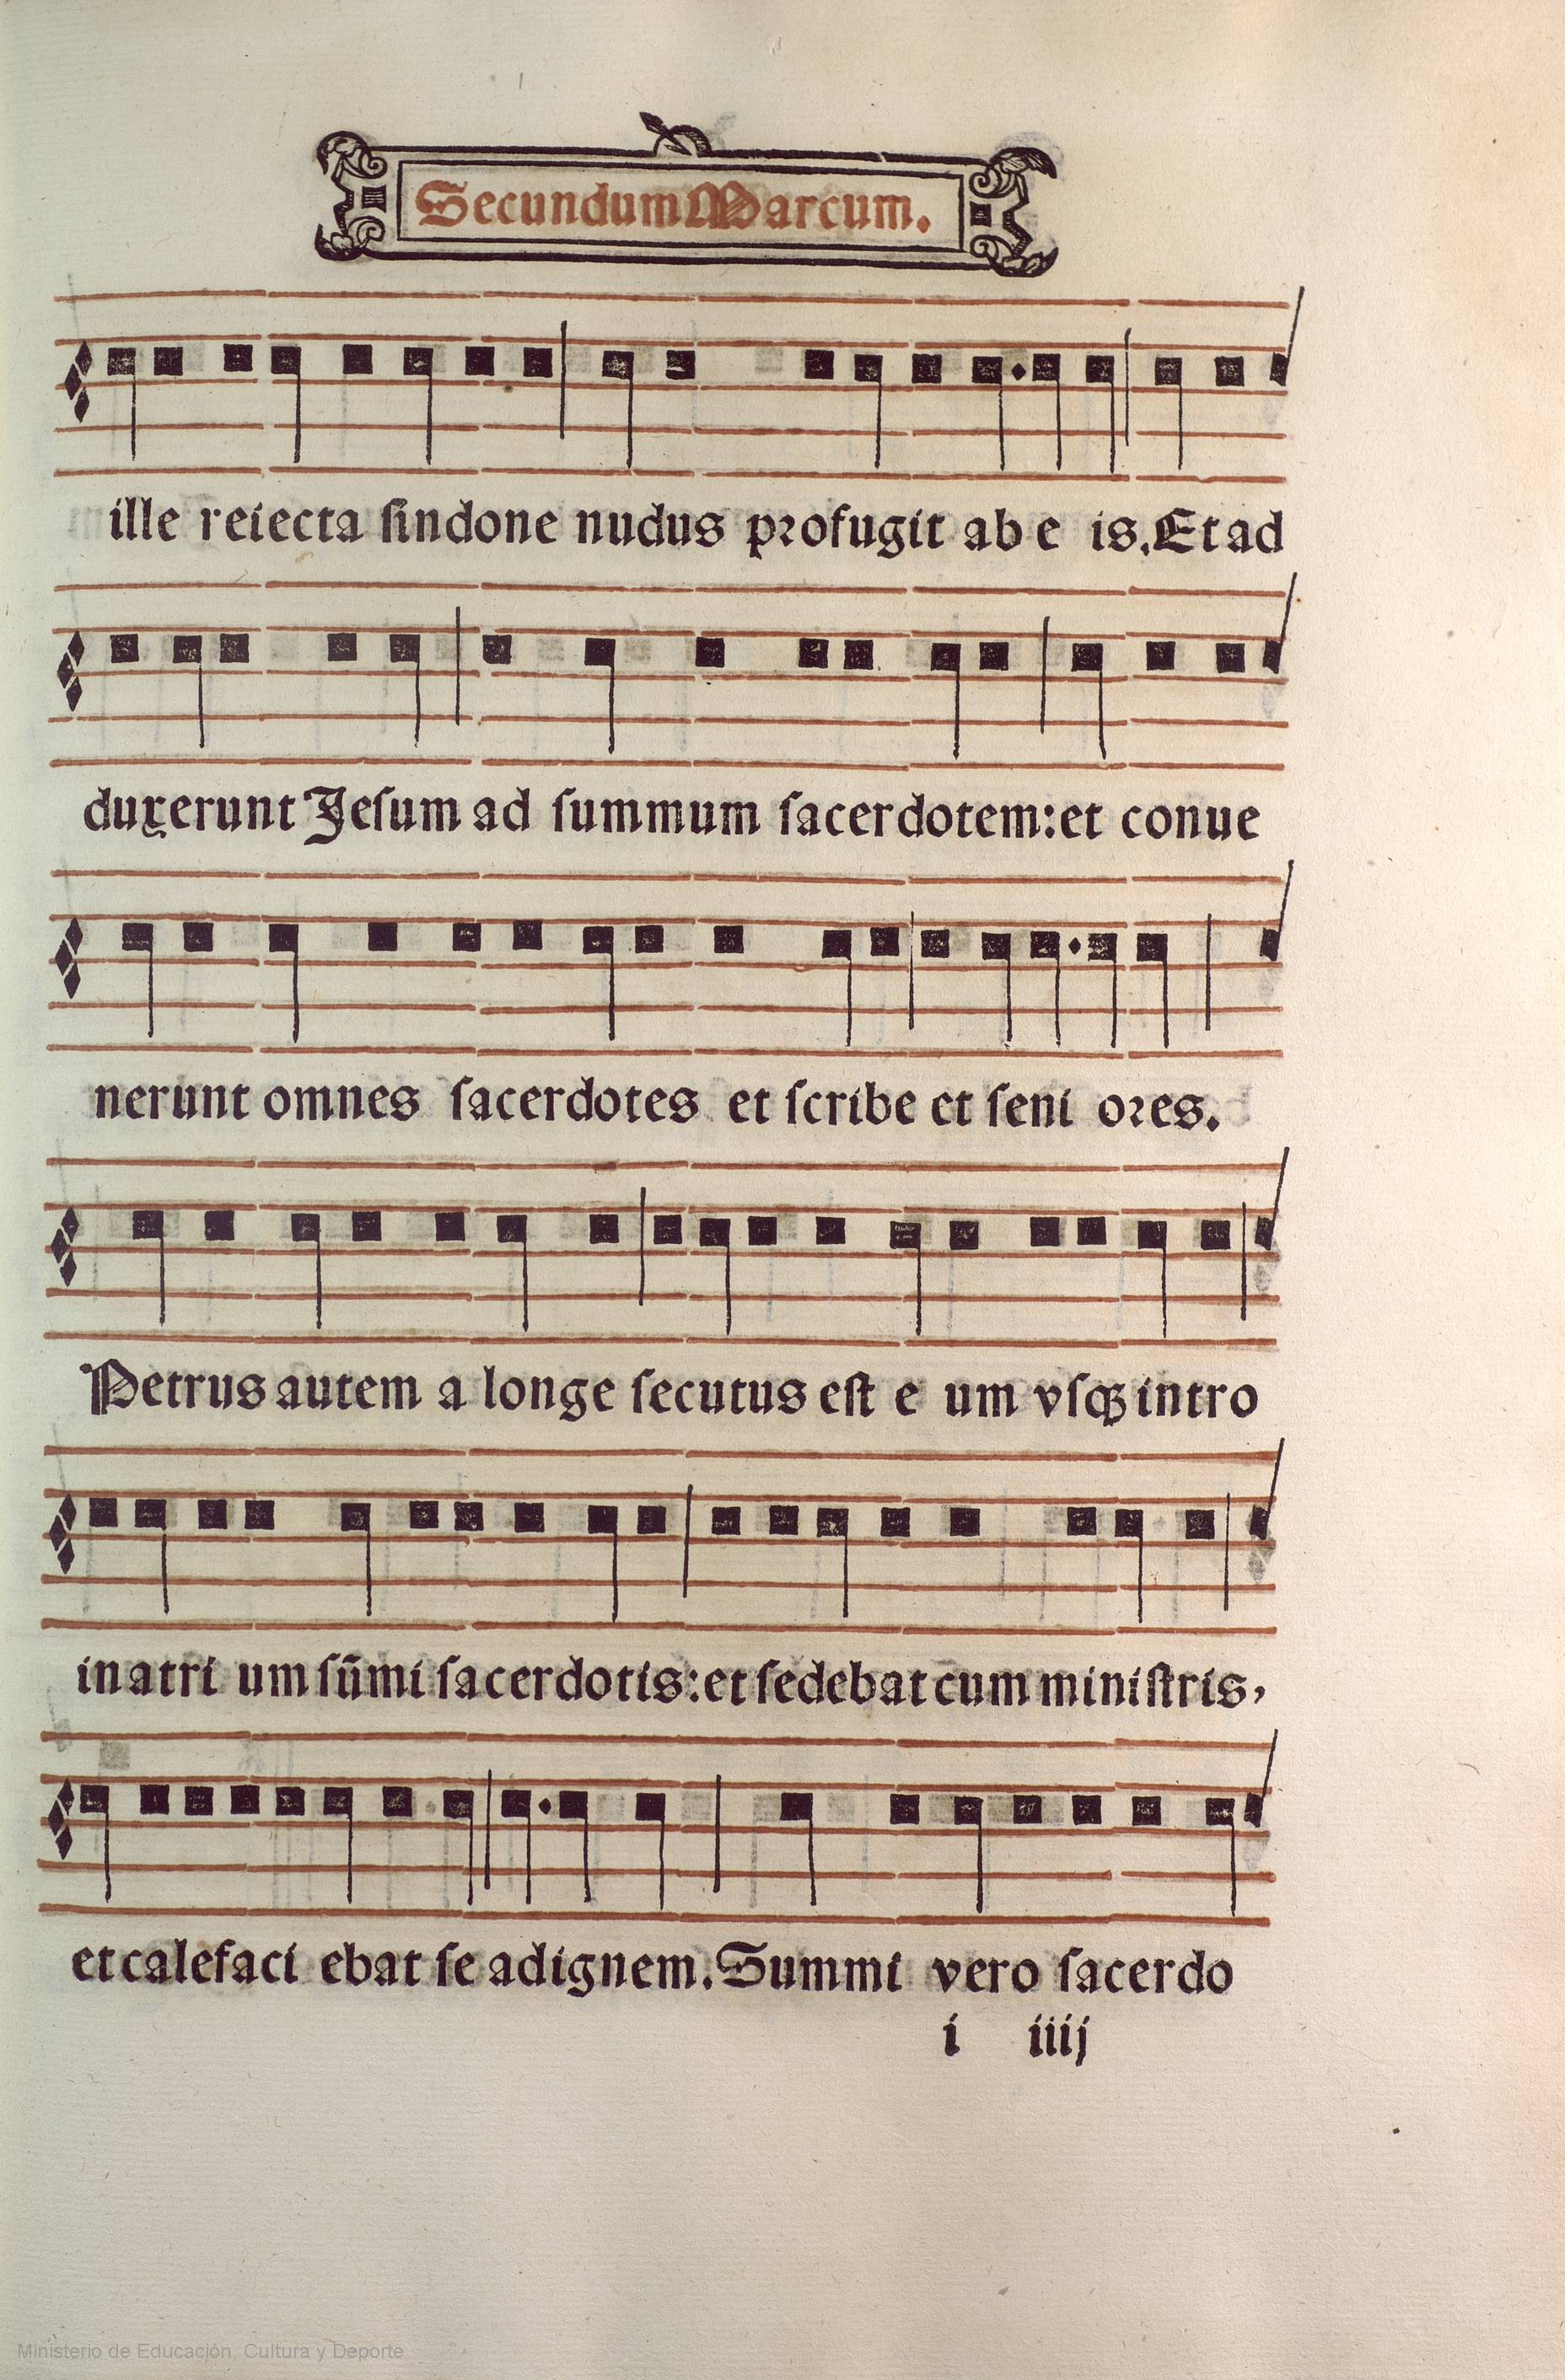 Secundum Marcum.
ille reiecta ſindone nudus profugit ab e is. Et ad
duxerunt Jeſum ad ſummum ſacerdotem: et conue
nerunt omnes ſacerdotes et ſcribe et ſeni ores.
Petrus autem a longe ſecutus eſt e um vſqꝫ intro
in atri um ſūmi ſacerdotis: et ſedebat cum miniſtris,
et calefaci ebat ſe ad ignem. Summi vero ſacerdo
i iiij
Ministerio de Educación, Cultura y Deporte